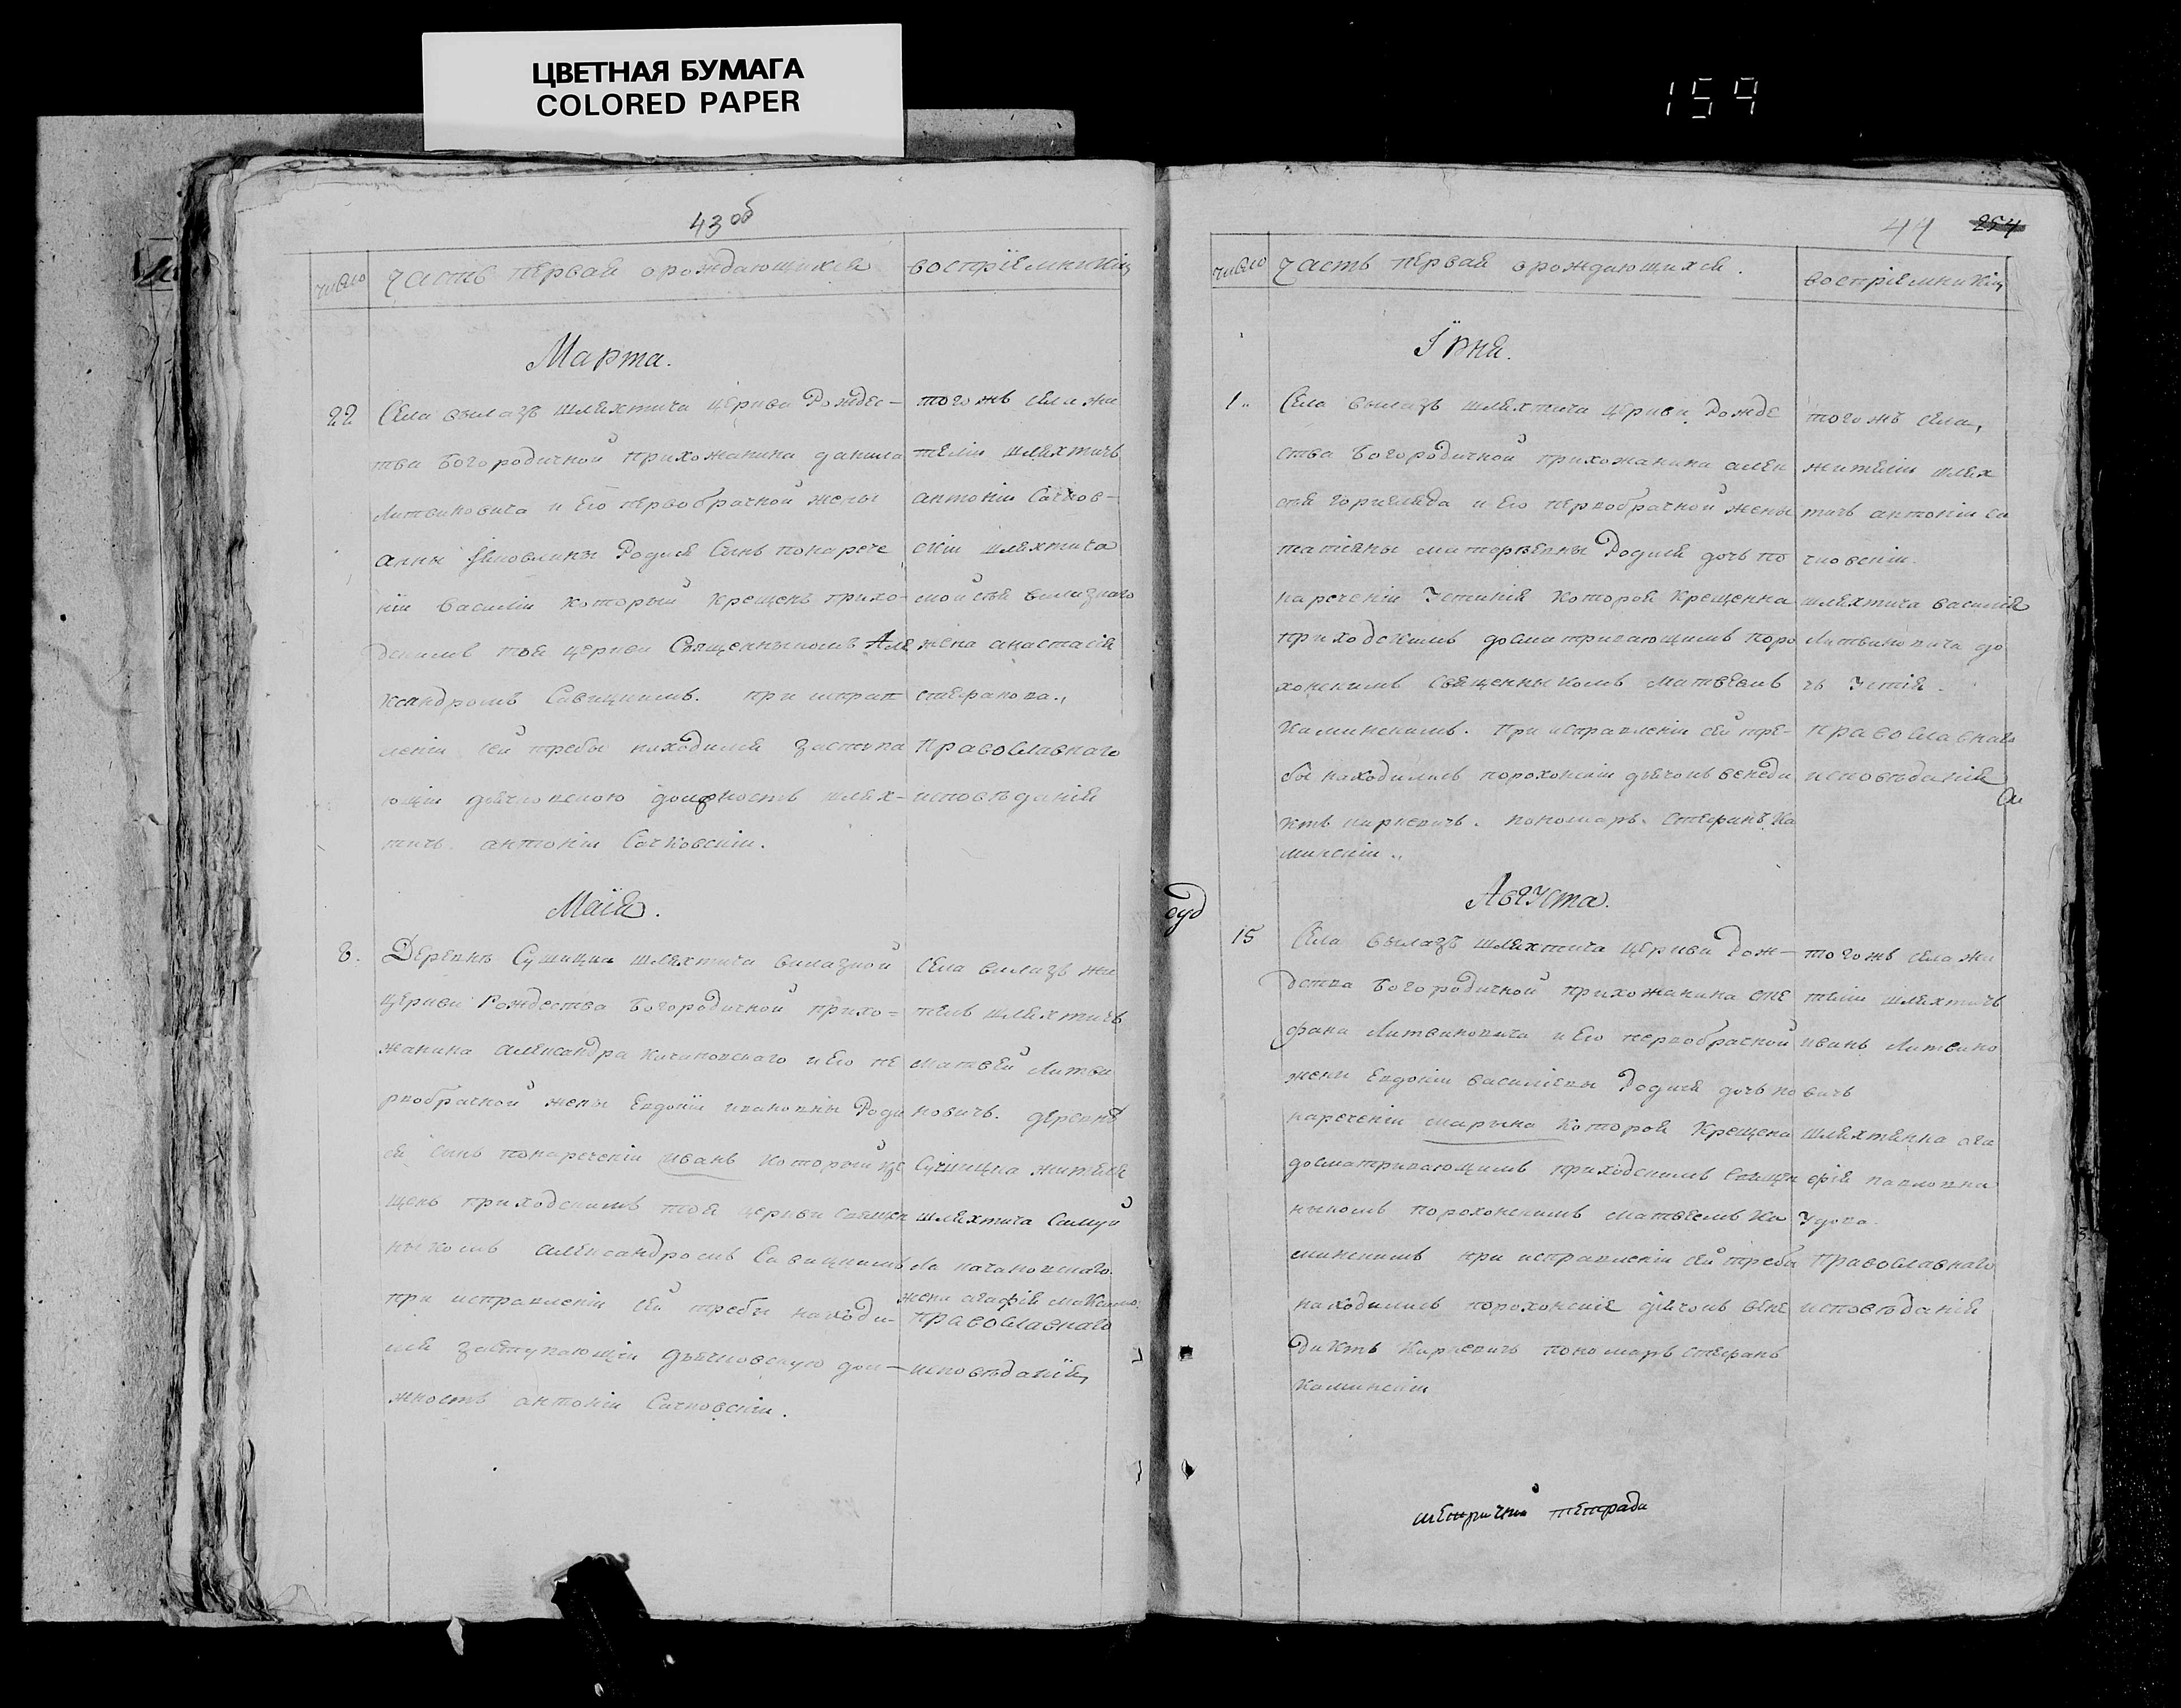 ЦВЕТНАЯ БУМАГА
COLORED PAPER
159
43 об
число
часть первая о рождающихся
воспрïемники
Марта.
22
Села вылазъ шляхтича церкви Рождес-
тва Богородичной прихожанина данила
Литвиновича и Его первобрачной жены
анны Родися Сынъ понарече
нïи василïи который крещенъ прихо-
дскимъ тоя церкви Священникомъ Але
ксандромъ Савицкимъ. при исправ
ленïи сей требы находился заступа
ющïи дьячковскою должность шлях-
тичь антонïи Сачковскïи.
тогожъ села жи
тели шляхтичь
антонïи Сачков-
скïи шляхтича
жена анастасïя
стефанова.,
Православнаго
исповѣданïя
Маïя.
8.
Деревнѣ Сушицка шляхтича вылазкой
церкви Рождества Богородичной прихо=
жанина александра Качановскаго и Его пе
рвобрачной жены Евдокïи ивановны Роди
ся сынъ понареченïи иванъ который кре
щенъ приходскимъ тоя церкви Священ
никомъ александромъ Савицкимъ
при исправленïи сей требы находи-
лся заступающïи дьячковскую дол-
жность антонïи Сачковскïи.
села вылазъ жи
тель шляхтичь
матвей Литви
новичь. деревнѣ
Сушицка жителя
шляхтича Самуй
ла качановскаго
жена агафïя
православнаго
исповѣданïя
44 254
число
часть первая о рождающихся.
воспрïемники
Їюня.
1..
Села вылазъ шляхтича церкви Рожде
ства Богородичной прихожанина алек
сѣя горегляда и Его первобрачной жены
татïяны Родися дочь по
нареченïи Устинïя которая крещенна
приходскимъ досматривающимъ поро
хонскимъ священникомъ матвеемъ
Каминскимъ. При исправленïи сей тре-
бы находились порохонскïи дьячокъ венеди
ктъ киркевичь. пономарь. Стефанъ Ка
минскïи.,
тогожъ села,
жители шлях
тичь антонïи са
чковскïи.
шляхтича василïя
Литвиновича до
чь Устïя.
православнаго
исповѣданïя
Августа.
15
Села вылазъ шляхтича церкви Рож-
дства Богородичной прихожанина сте
фана Литвиновича и Его первобрачной
жены Евдокïи василïевы Родися дочь по
нареченïи марына которая крещена
досматривающимъ приходскимъ священ
никомъ порохонскимъ матвеемъ Ка
минскимъ при исправленïи сей требы
находились порохонскïе дьячокъ вене
диктъ Киркевичь пономарь стефанъ
Каминскïи
тогожъ села жи
тели шляхтичь
иванъ Литвино
вичь
шляхтянка ага
фïя павловна
Православнаго
исповѣданïя
метричной тетради